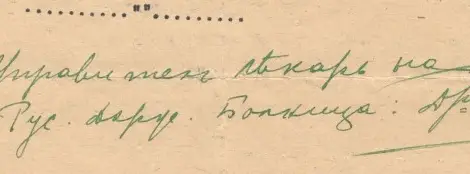 .........."".........
Управителъ лѣкарь на
Рус. Држс. Болница: Др